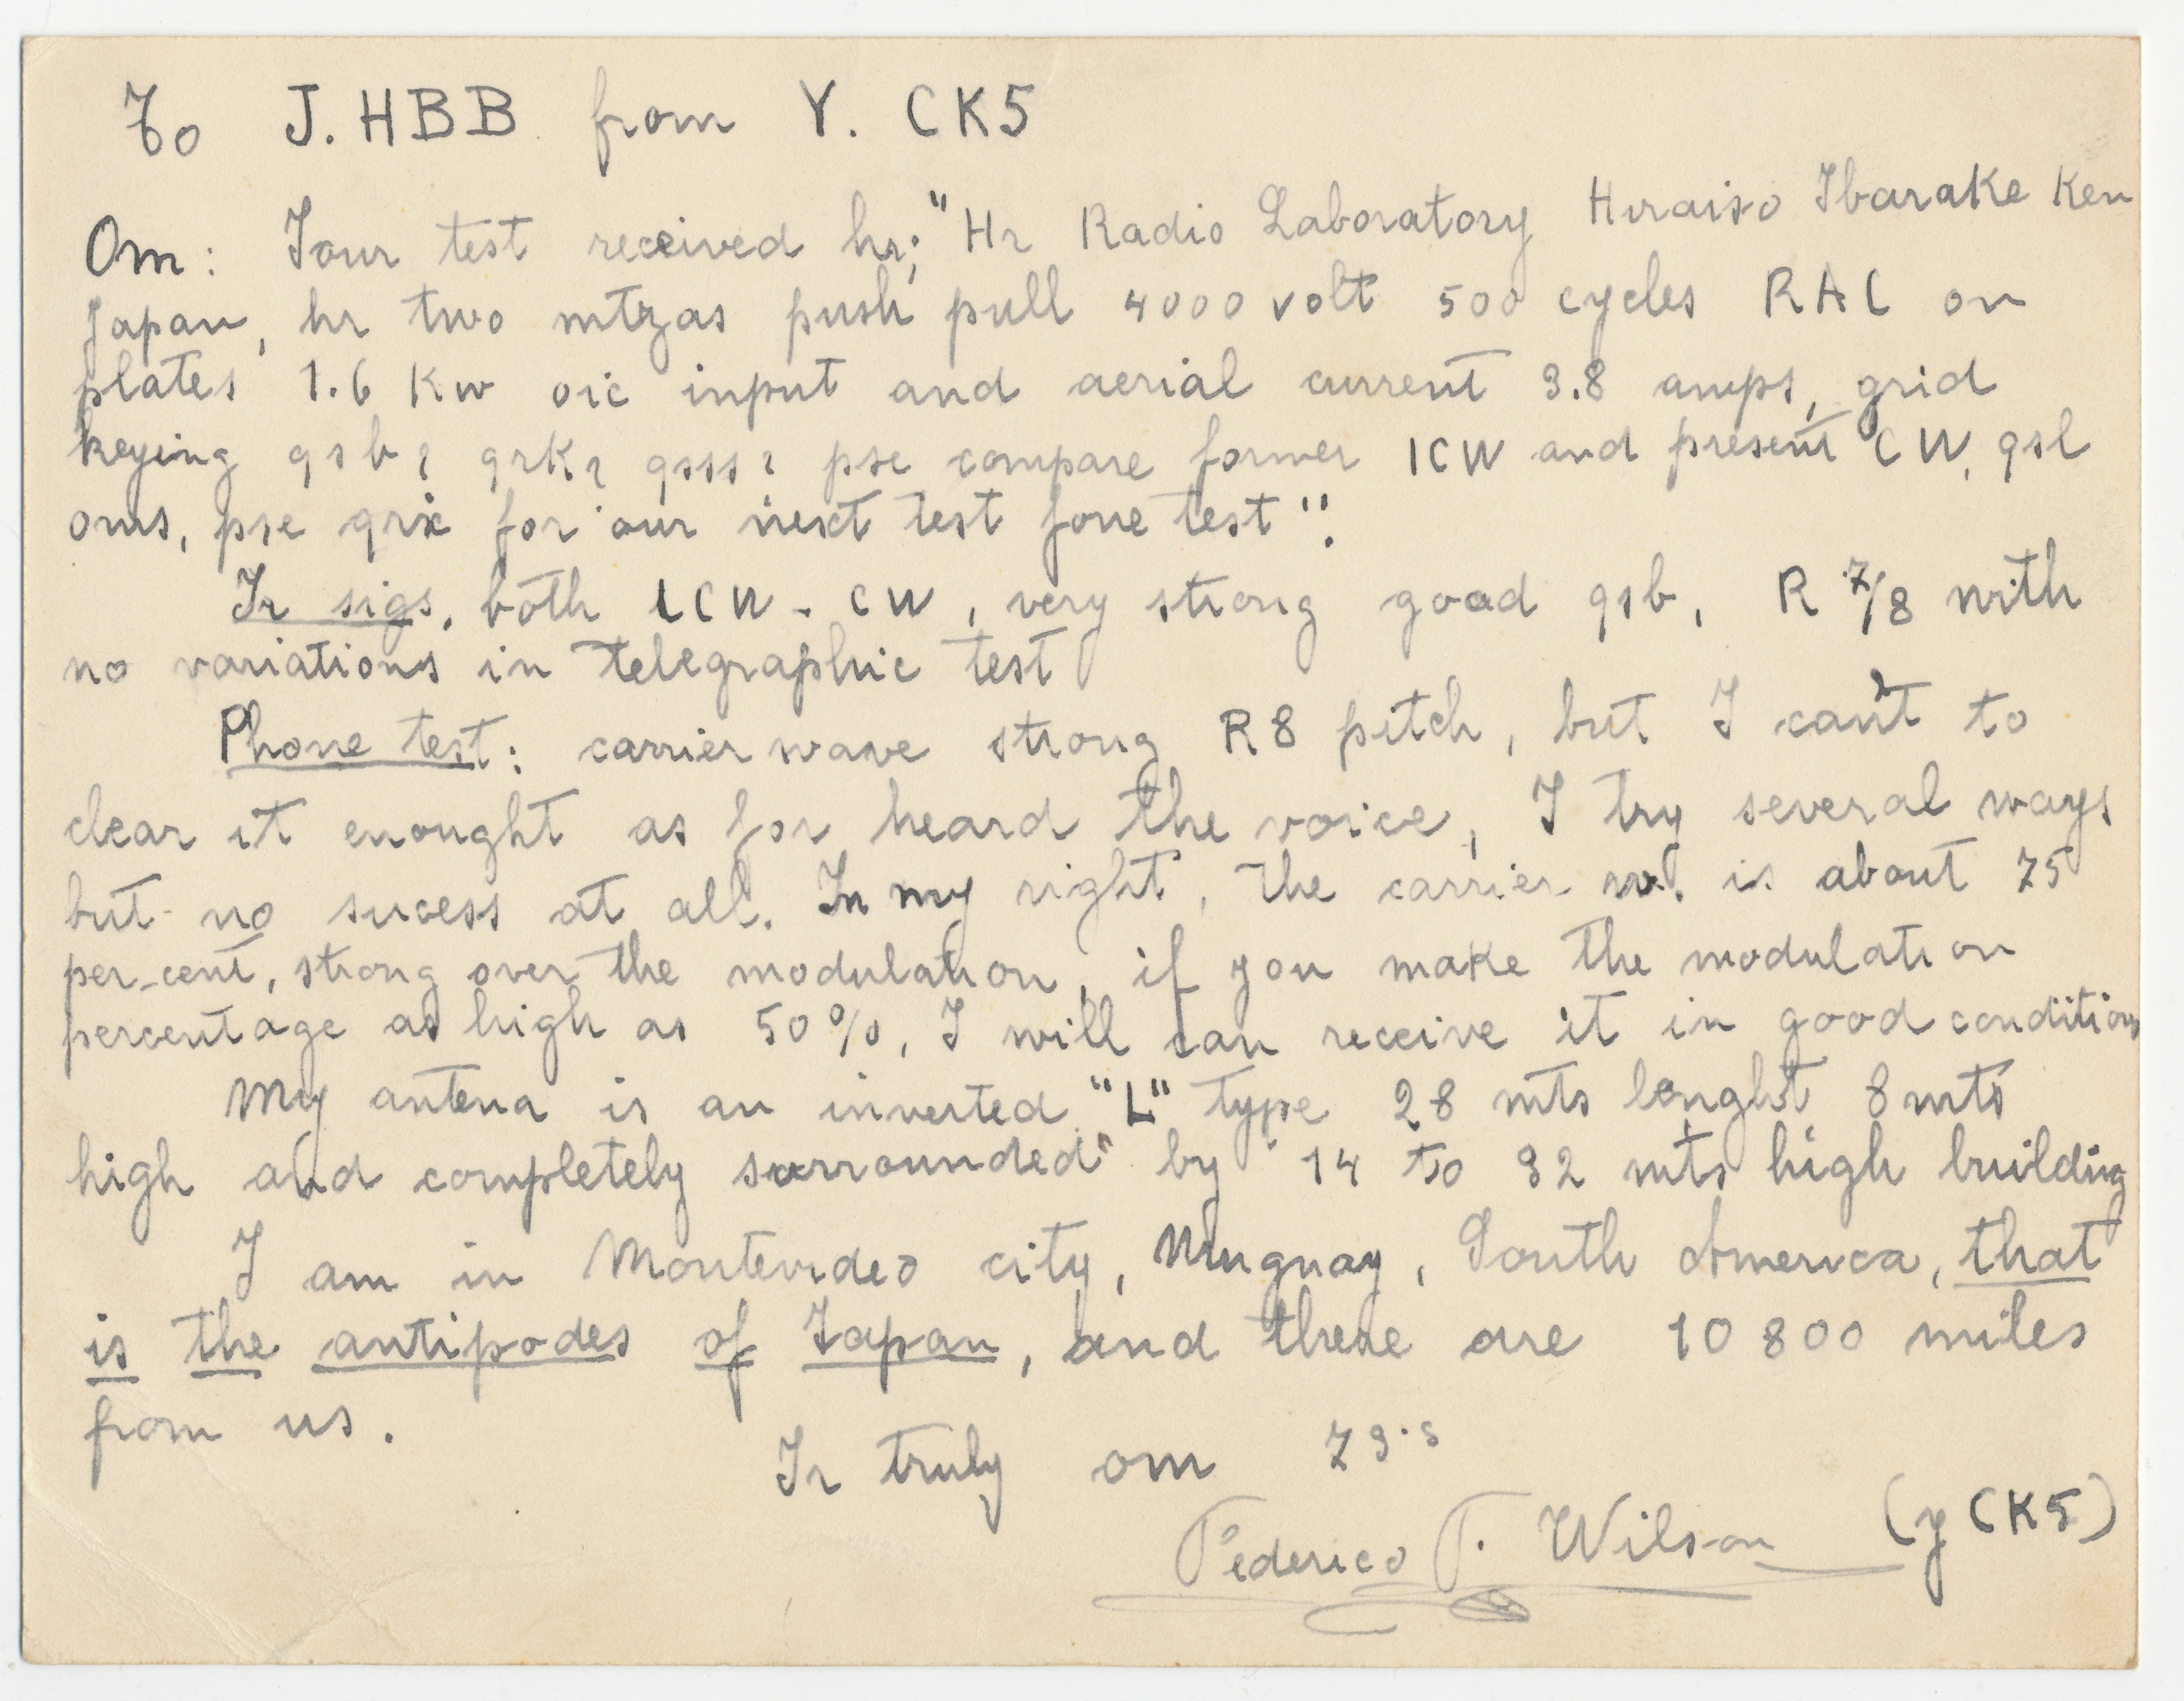 To J. HBB from Y. CK5
Om: Your test received hr; "Hr Radio Laboratory Hiraiso Ibarake Ken
Japan, hr two mtzas push pull 4000 volt 500 cycles RAC on
plates 1.6 Kw oic input and aerial current 3.8 amps, grid
keying qsb? qrk? qsss? pse compare former ICW and present CW, qsl
oms, pse qrx for our next test fone test".
Yr sigs, both ICW - CW, very strong good qsb, R 7/8 with
no variations in telegraphic test
Phone test: carrier wave strong R8 pitch, but I can't to
clear it enought as for heard the voice, I try several ways
but no sucess at all. In my right, the carrier w. is about 75
per-cent, strong over the modulation, if you make the modulation
percentage as high as 50%, I will can receive it in good condition
My antena is an inverted "L" type 28 mts lenght 8 mts
high and completely surrounded by 14 to 32 mts high building
I am in Montevideo city, Uruguay, South America, that
is the antipodes of Japan, and there are 10 800 miles
from us.
Yr truly om 73's
Federico T. Wilson (y CK5)